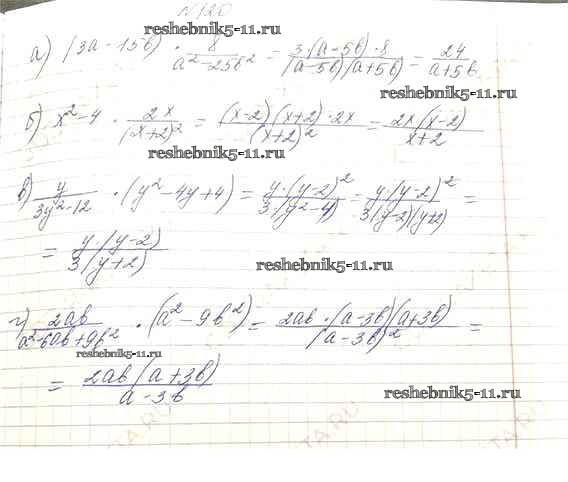 №120
reshebnik5-11.ru
а) (3a-15b) · 8/(a²-25b²) = 3·(a-5b)·8/((a-5b)(a+5b)) = 24/(a+5b)
reshebnik5-11.ru
б) x²-4 · 2x/(x+2)² = (x-2)(x+2)·2x/(x+2)² = 2x(x-2)/(x+2)
reshebnik5-11.ru
в) y/(3y²-12) · (y²-4y+4) = y·(y-2)²/(3·(y²-4)) = y·(y-2)²/(3(y-2)(y+2)) =
= y·(y-2)/(3(y+2))
reshebnik5-11.ru
г) 2ab/(a²-6ab+9b²) · (a²-9b²) = 2ab·(a-3b)(a+3b)/(a-3b)² =
reshebnik5-11.ru
= 2ab(a+3b)/(a-3b)
reshebnik5-11.ru